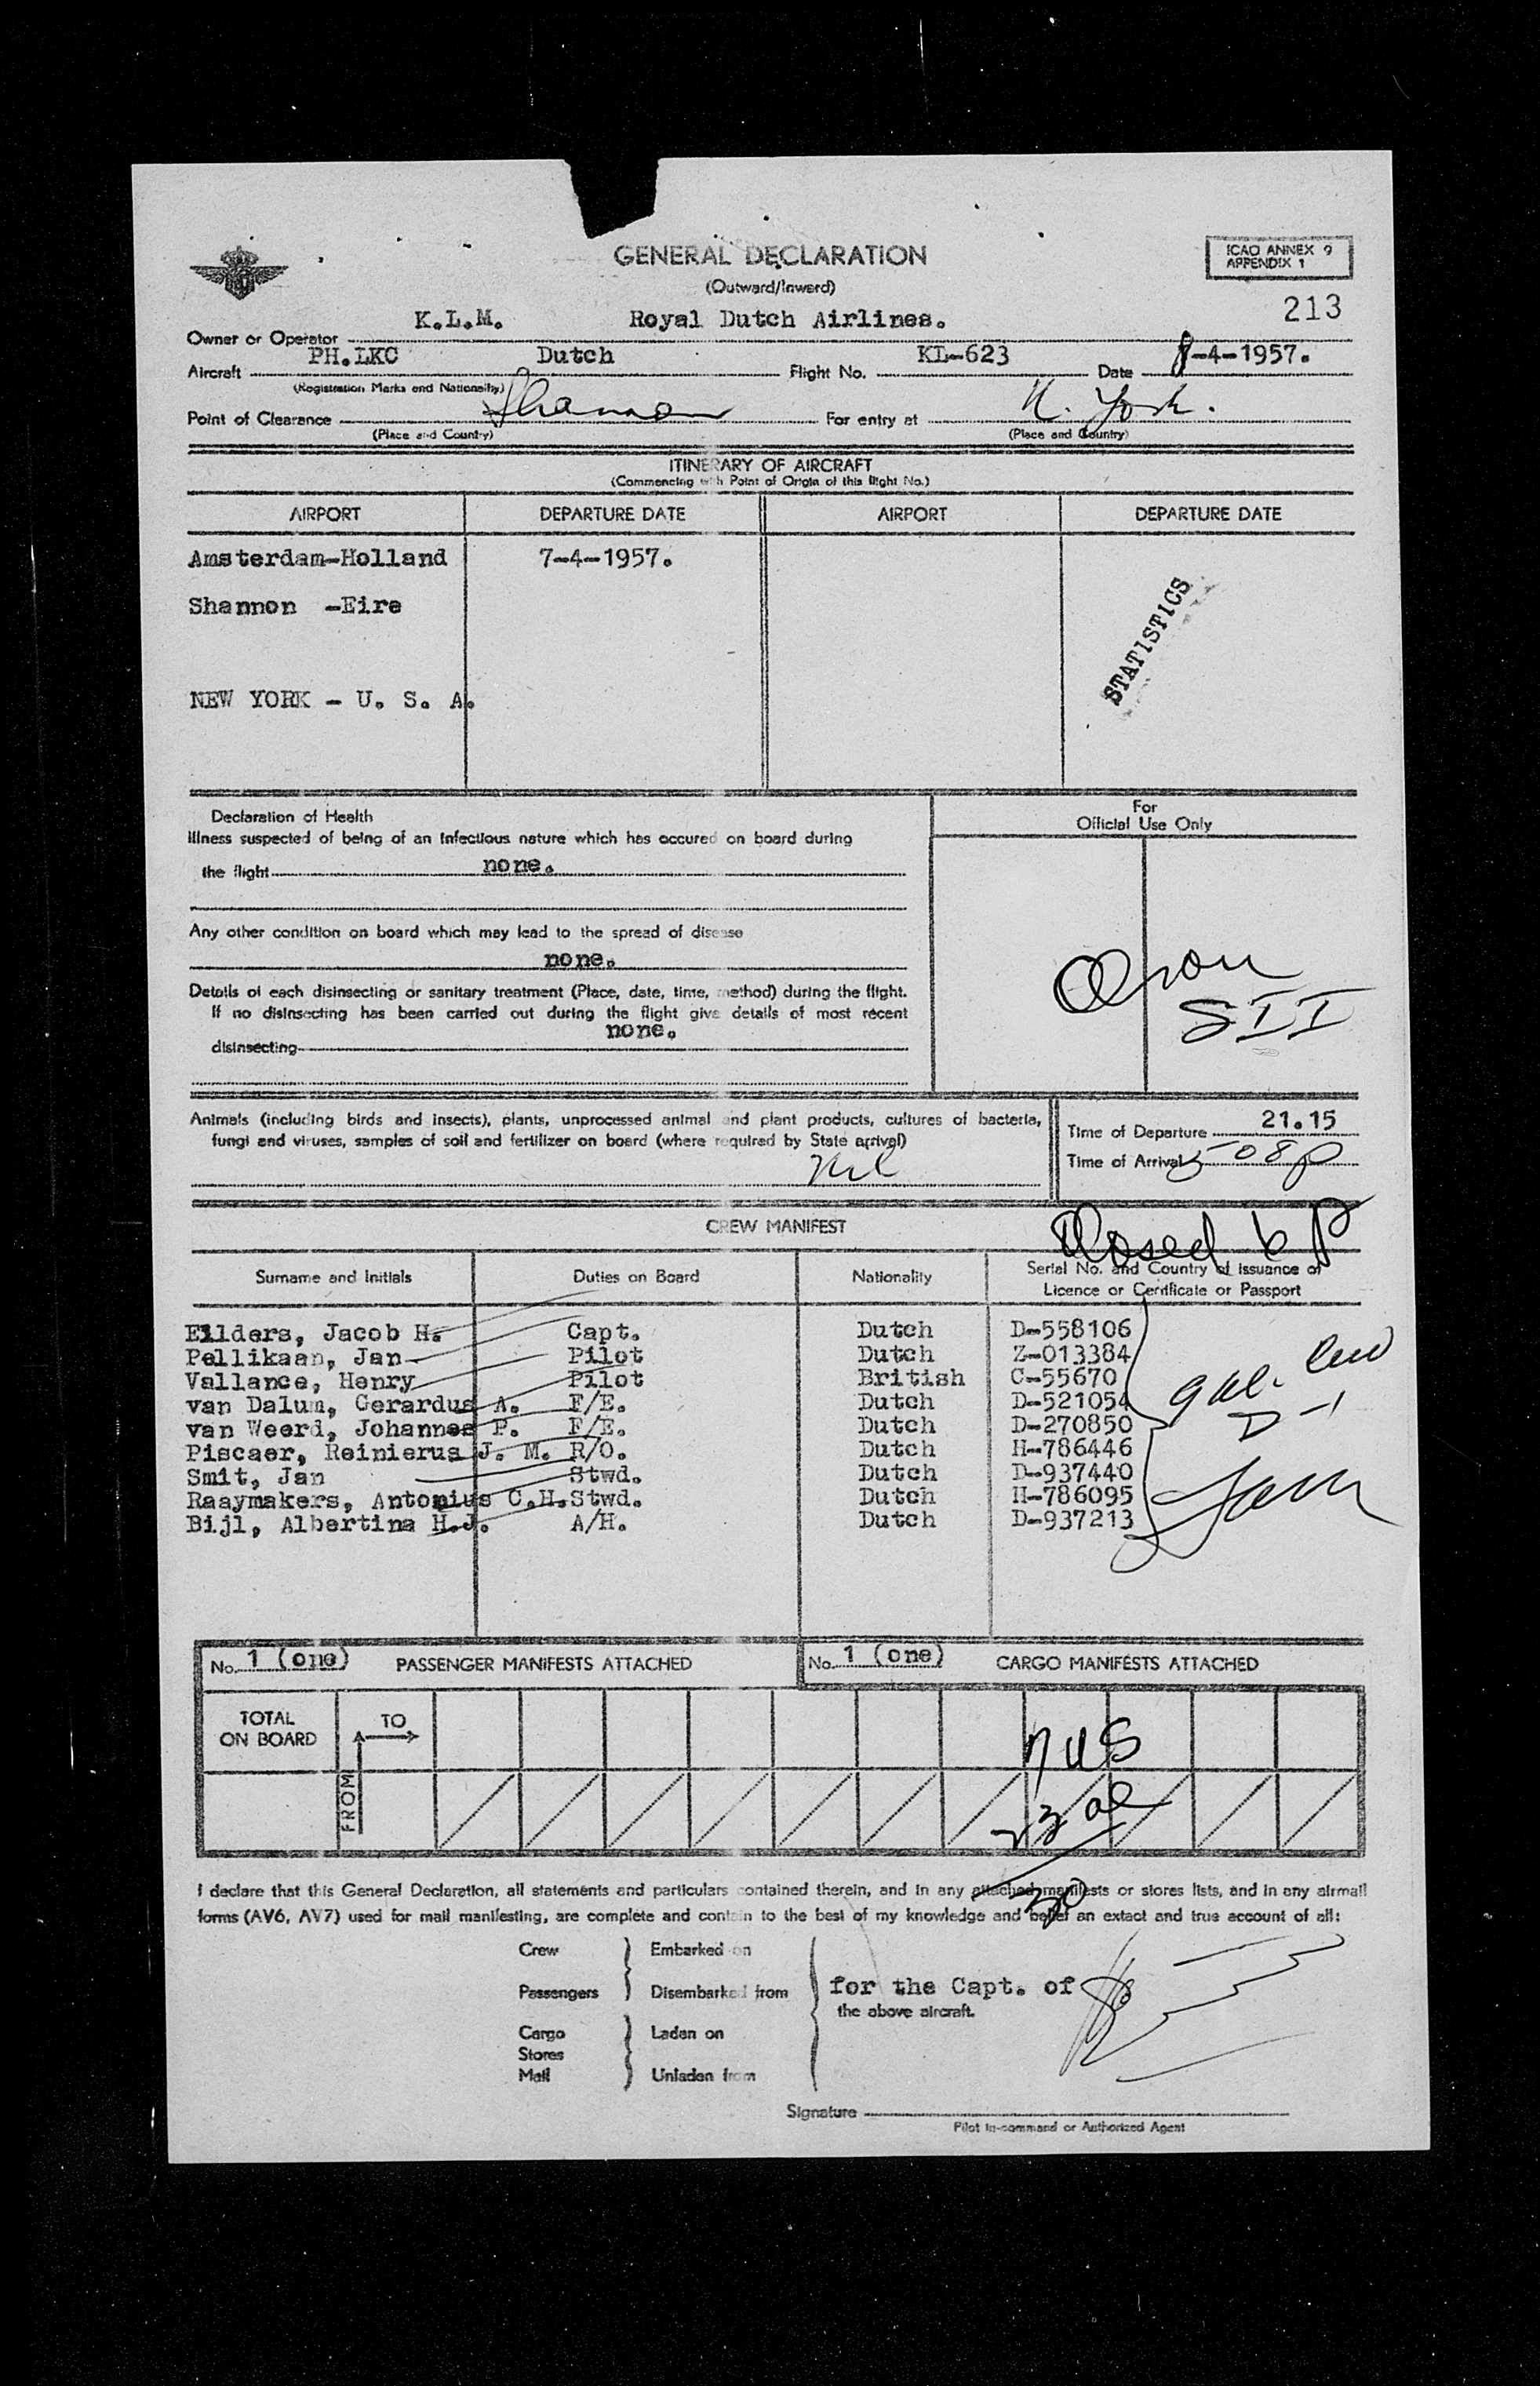 GENERAL DECLARATION
(Outward/Inward)
ICAO ANNEX 9
APPENDIX 1
213
Owner or Operator K.L.M. Royal Dutch Airlines.
Aircraft PH.LKC Dutch Flight No. KL-623 Date 8-4-1957.
(Registration Marks and Nationality)
Point of Clearance Shannon For entry at N. York.
(Place and Country) (Place and Country)
ITINERARY OF AIRCRAFT
(Commencing with Point of Origin of this flight No.)
AIRPORT DEPARTURE DATE AIRPORT DEPARTURE DATE
Amsterdam-Holland 7-4-1957.
Shannon -Eire
STATISTICS
NEW YORK - U. S. A.
Declaration of Health
Illness suspected of being of an infectious nature which has occured on board during
the flight none.
Any other condition on board which may lead to the spread of disease
none.
Details of each disinsecting or sanitary treatment (Place, date, time, method) during the flight.
If no disinsecting has been carried out during the flight give details of most recent
none.
disinsecting
For
Official Use Only
SII
Animals (including birds and insects), plants, unprocessed animal and plant products, cultures of bacteria,
fungi and viruses, samples of soil and fertilizer on board (where required by State arrival)
Nil
Time of Departure 21.15
Time of Arrival 5-08p
CREW MANIFEST
Closed 6 P
Surname and Initials Duties on Board Nationality Serial No. and Country of Issuance of
Licence or Certificate or Passport
Eilders, Jacob H. Capt. Dutch D-558106
Pellikaan, Jan Pilot Dutch Z-013384
Vallance, Henry Pilot British C-55670
van Dalum, Gerardus A. F/E. Dutch D-521054
van Weerd, Johannes P. F/E. Dutch D-270850
Piscaer, Reinierus J. M. R/O. Dutch H-786446
Smit, Jan Stwd. Dutch D-937440
Raaymakers, Antonius C.H. Stwd. Dutch H-786095
Bijl, Albertina H.J. A/H. Dutch D-937213
D-1
No. 1 (one) PASSENGER MANIFESTS ATTACHED
No. 1 (one) CARGO MANIFESTS ATTACHED
TOTAL
ON BOARD
TO
FROM
7 US
23 al
30
I declare that this General Declaration, all statements and particulars contained therein, and in any attached manifests or stores lists, and in any airmail
forms (AV6, AV7) used for mail manifesting, are complete and contain to the best of my knowledge and belief an extact and true account of all:
Crew Embarked on
Passengers Disembarked from
for the Capt. of
the above aircraft.
Cargo Laden on
Stores
Mail Unladen from
Signature
Pilot in-command or Authorized Agent